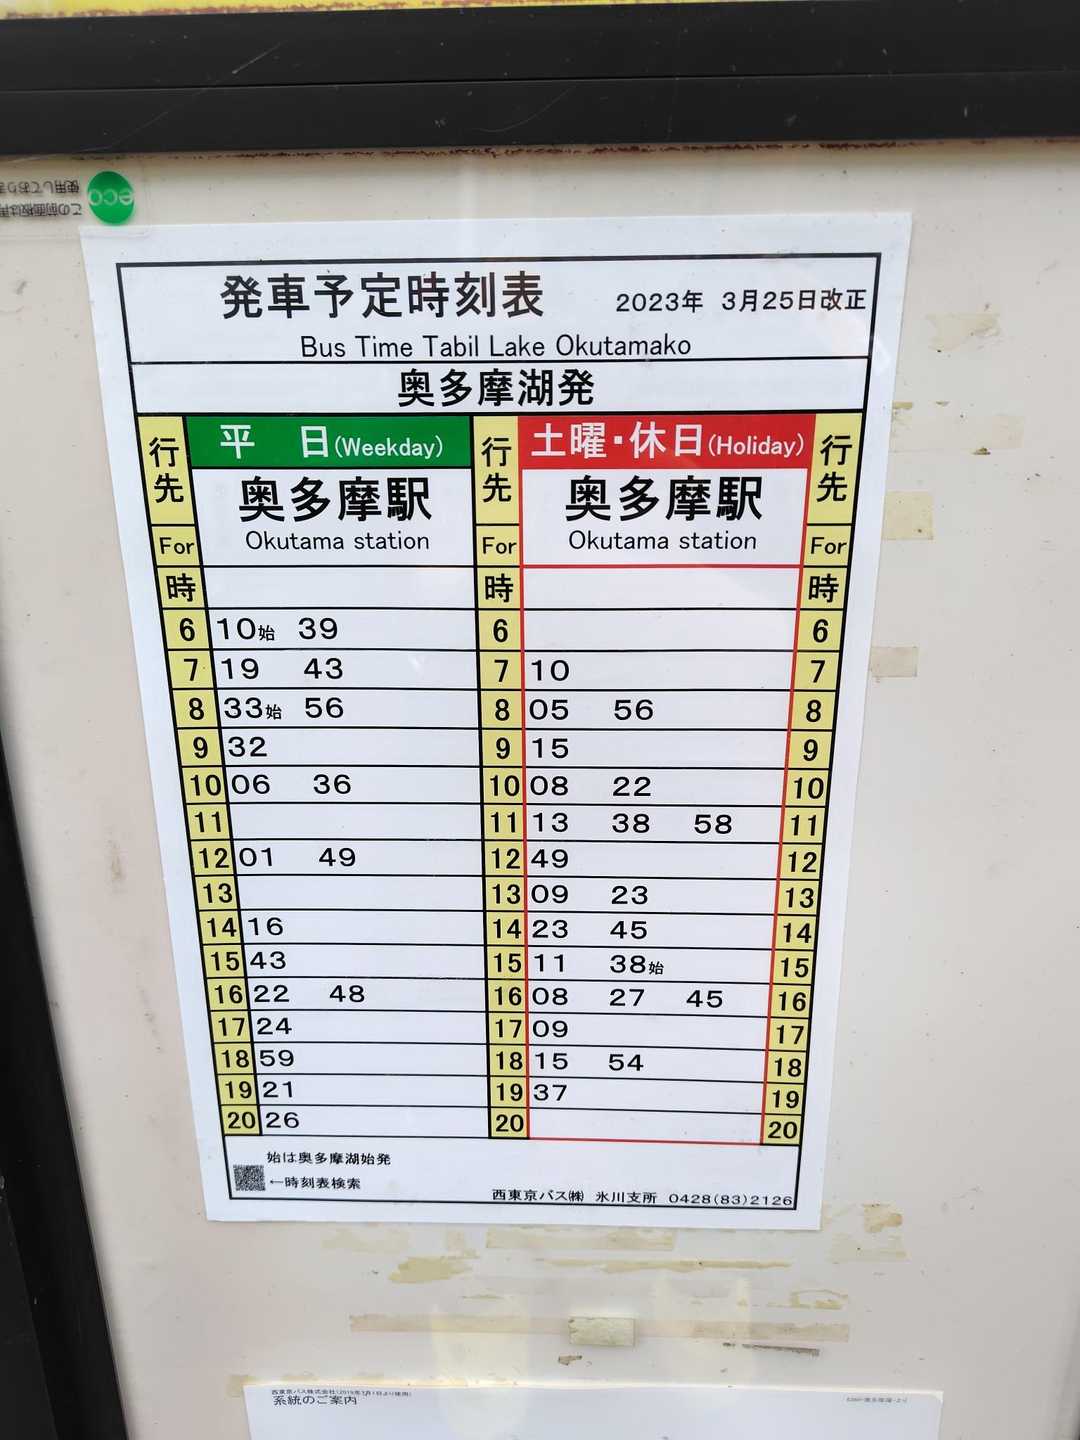 eco
発車予定時刻表 2023年 3月25日改正
Bus Time Tabil Lake Okutamako
奥多摩湖発
行先 平 日(Weekday) 行先 土曜・休日(Holiday) 行先
奥多摩駅 奥多摩駅
For Okutama station For Okutama station For
時 時 時
6 10始 39 6 6
7 19 43 7 10 7
8 33始 56 8 05 56 8
9 32 9 15 9
10 06 36 10 08 22 10
11 11 13 38 58 11
12 01 49 12 49 12
13 13 09 23 13
14 16 14 23 45 14
15 43 15 11 38始 15
16 22 48 16 08 27 45 16
17 24 17 09 17
18 59 18 15 54 18
19 21 19 37 19
20 26 20 20
始は奥多摩湖始発
←時刻表検索
西東京バス㈱ 氷川支所 0428(83)2126
系統のご案内